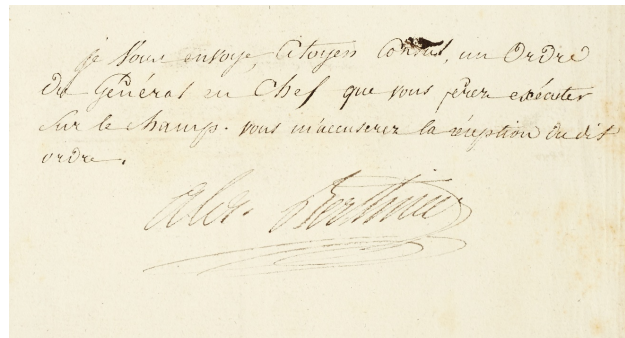 je vous envoye, Citoyen Consul, un Ordre
du Général en Chef que vous ferez exécuter
sur le champ. vous m'accuserez la réception du dit
ordre.
Alex. Berthier